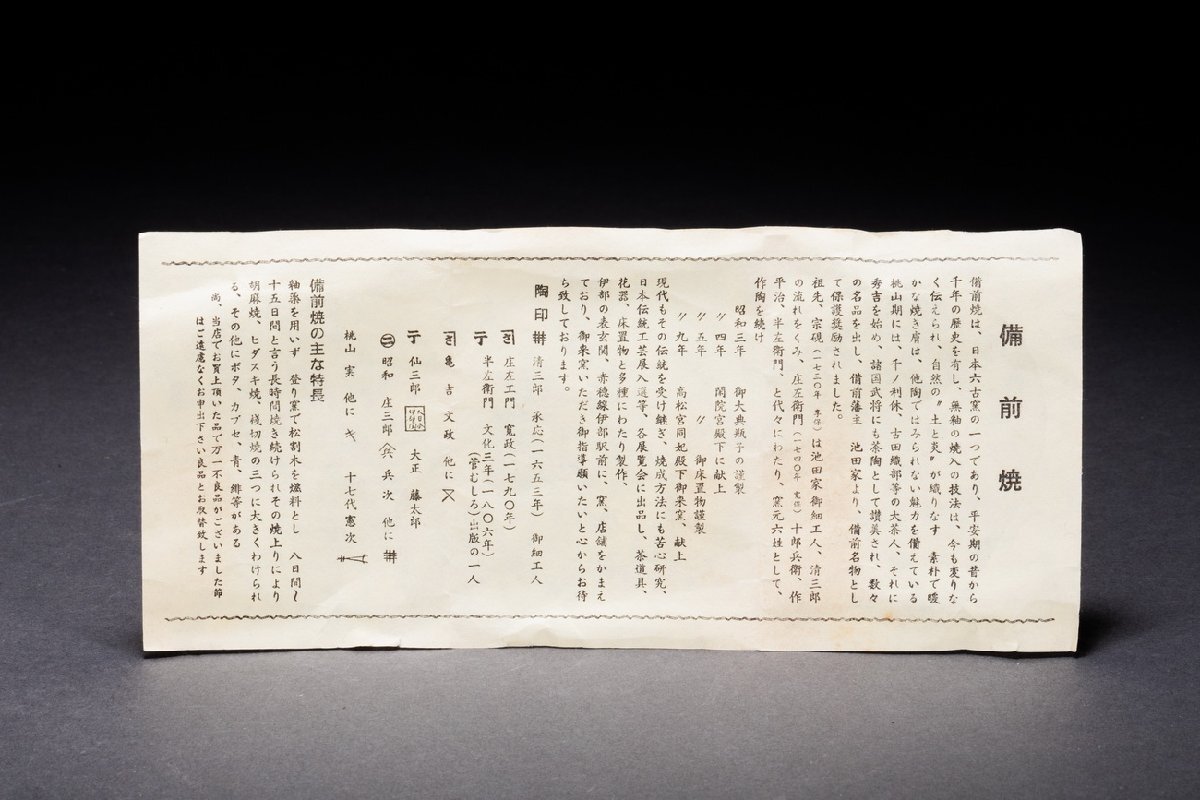 備前焼
備前焼は、日本六古窯の一つであり、平安期の昔から
千年の歴史を有し、無釉の焼入の技法は、今も変りな
く伝えられ、自然の〝土と炎〟が織りなす 素朴で暖
かな焼き膚は、他陶ではみられない魅力を備えている
桃山期には、千ノ利休、古田織部等の大茶人、それに
秀吉を始め、諸国武将にも茶陶として讃美され、数々
の名品を出し、備前藩主 池田家より、備前名物とし
て保護奨励されました。
祖先、宗硯(一七二〇年 享保)は池田家御細工人、清三郎
の流れをくみ、庄左衛門(一七四〇年 元保)十郎兵衛、作
平治、半左衛門、と代々にわたり、窯元六姓として、
作陶を続け
昭和三年 御大典瓶子の謹製
〃四年 閑院宮殿下に献上
〃五年 〃 御床置物謹製
〃九年 高松宮同妃殿下御来窯、献上
現代もその伝統を受け継ぎ、焼成方法にも苦心研究、
日本伝統工芸展入選等、各展覧会に出品し、茶道具、
花器、床置物と多種にわたり製作、
伊部の表玄関、赤穂線伊部駅前に、窯、店舗をかまえ
ており、御来窯いただき御指導願いたいと心からお待
ら致しております。
陶印 清三郎 承応(一六五三年) 御細工人
庄左エ門 寛政(一七九〇年)
半左衛門 文化三年(一八〇六年)
(菅むしろ)出版の一人
亀吉 文政 他に
仙三郎 大正 藤太郎
昭和 庄三郎 兵 兵次 他に
桃山 実 他に 十七代憲次
備前焼の主な特長
釉薬を用いず 登り窯で松割木を燃料とし 八日間し
十五日間と言う長時間焼き続けられその焼上りにより
胡麻焼、ヒダスキ焼、桟切焼の三つに大きくわけられ
る、その他にボタ、カブセ、青、緋等がある
尚、当店でお買上頂いた品で万一不良品がございました節
はご遠慮なくお申出下さい良品とお取替致します